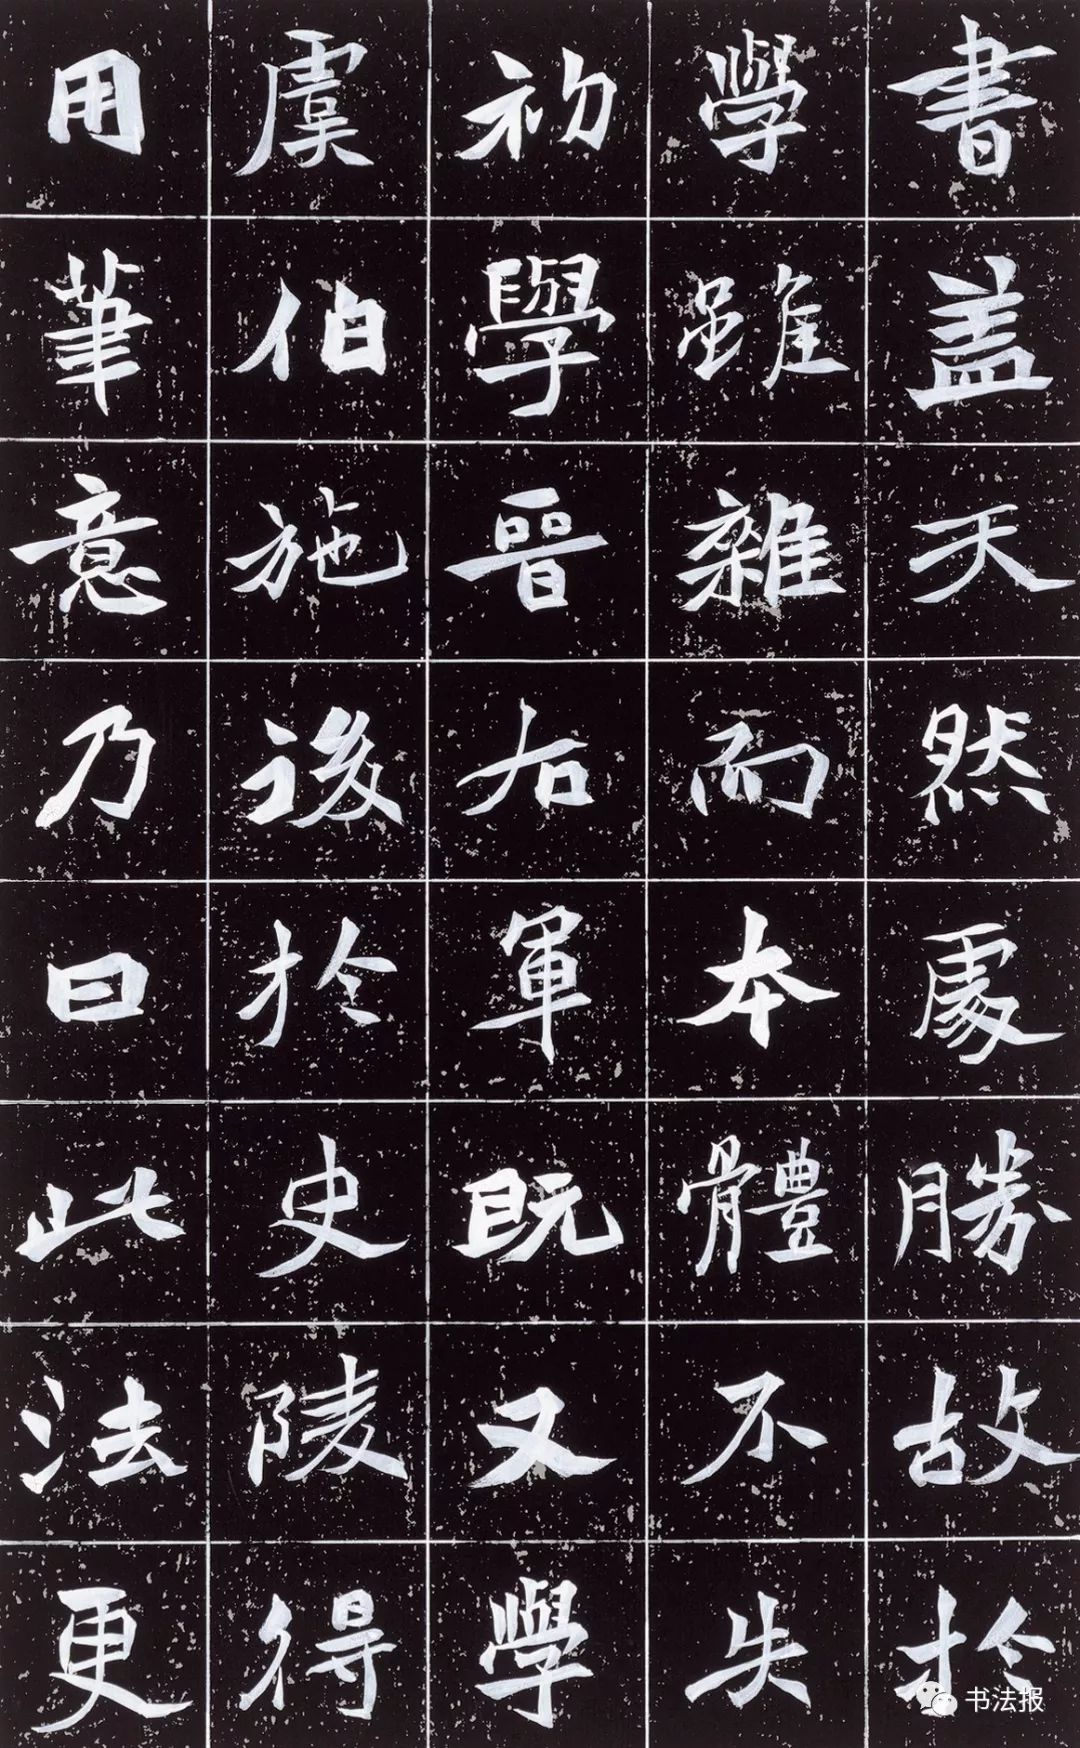 書盖天然處勝故於
學雖雜而本體不失
初學晉右軍既又學
虞伯施後於史陵得
用筆意乃曰此法更
书法报